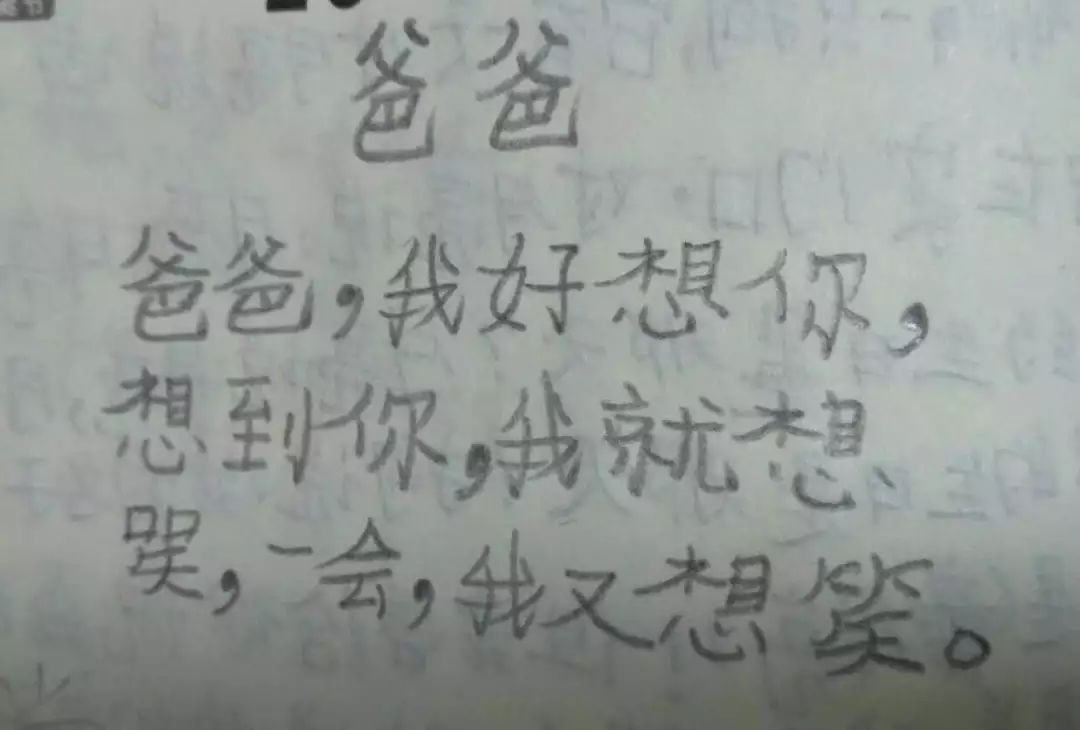 爸爸
爸爸,我好想你,
想到你,我就想
哭,一会,我又想笑。